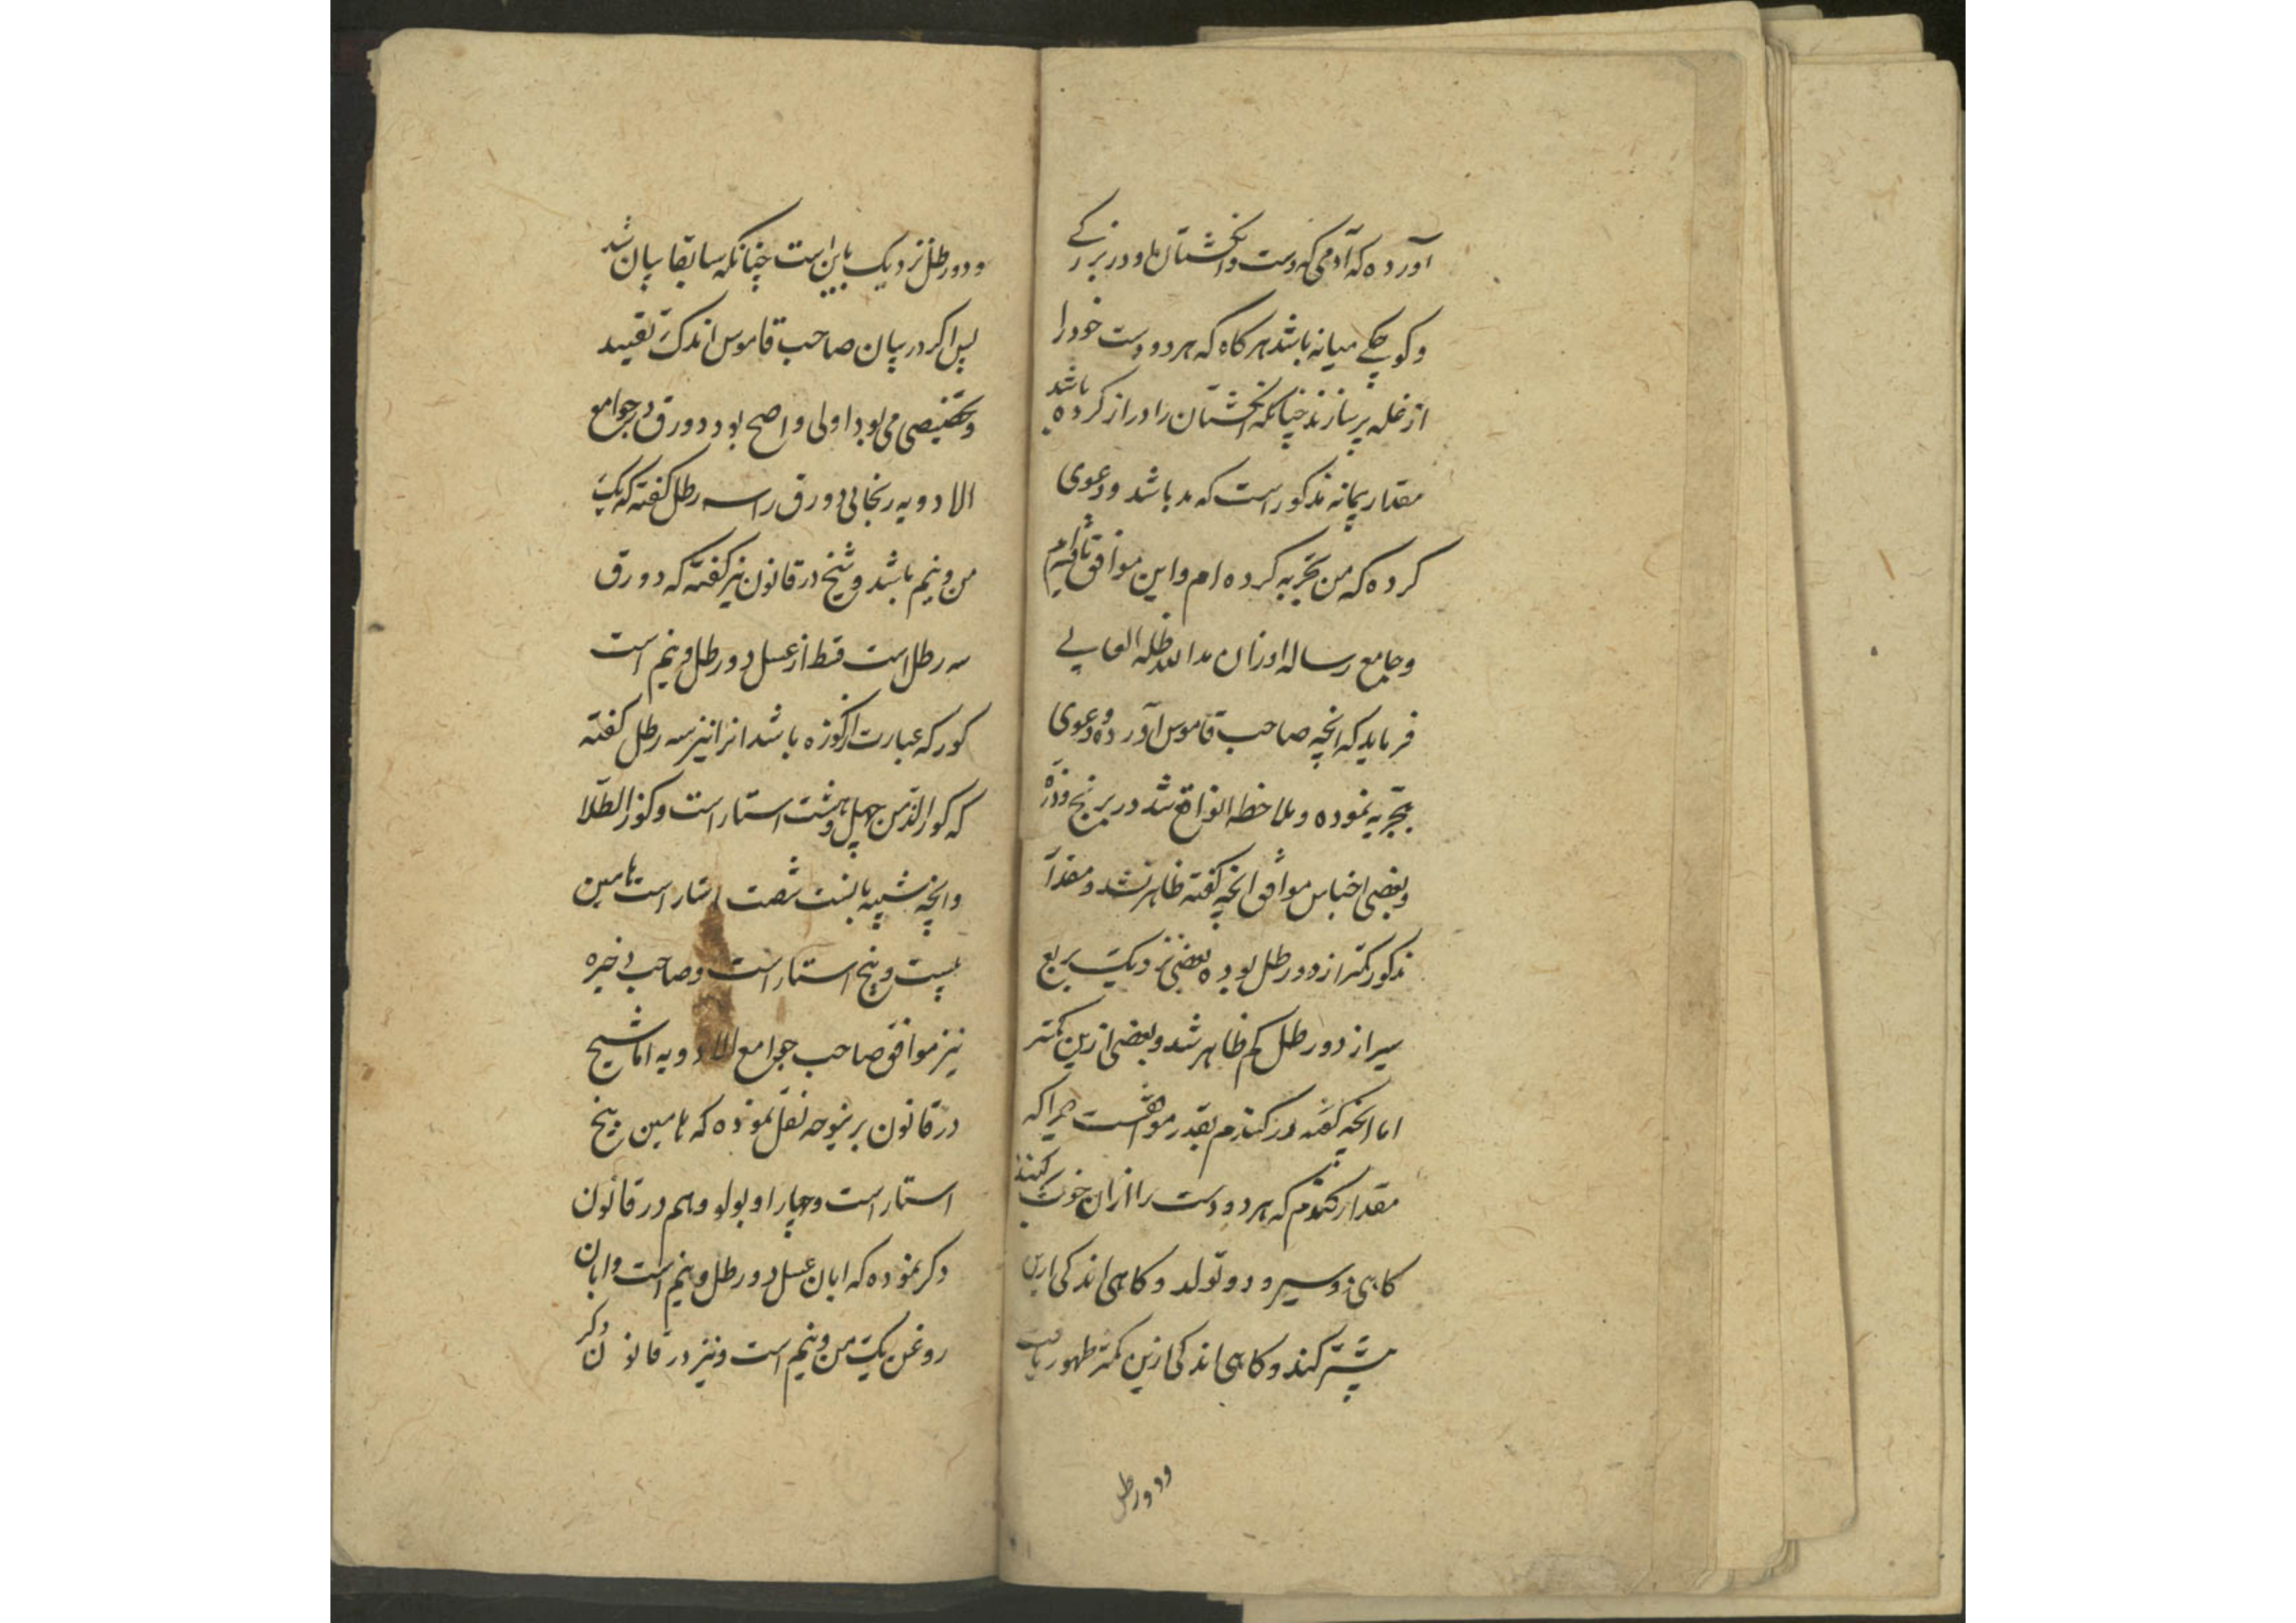 آورده که آدمی که دست و انگشتان او در بزرگے
و کوچکے میانه باشد هرکاه که هر دو دست خود را
از غله پر سازند چنانکه انکشتان را دراز کرده باشد
مقدار پیمانه مذکور است که مد باشد و دعوی
کرده که من تجربه کرده ام و این موافق یافته ام
و جامع رساله اوزان مد الله ظله العالے
فرماید که انچه صاحب قاموس آورده و دعوی
تجربه نموده و ملاحظه انواع شد در برنج و ذره
و بعضی اجناس موافق انچه کفته ظاهر نشد و مقدار
مذکور کمتر از دو رطل بوده بعضی نزدیک بربع
سیر از دو رطل کم ظاهر شد و بعضی ازین کمتر
اما انچه کفته در کندم بقدر موافقست چرا که
مقدار کندم که هر دو دست را ازان خوب کنند
کاهی دو سیر و دو توله و کاهی اندکی ازین
بیشتر کند و کاهی اندکی ازین کمتر ظهور یافت
و دو رطل
و دو رطل نزدیک باین است چنانکه سابقا بیان شد
پس اکر در بیان صاحب قاموس اندک تقیید
و تخصیصی می بود اولی و اصح بود دورق در جوامع
الادویه ریحانی دورق را سه رطل کفته که یک
من و نیم باشد و شیخ در قانون نیز کفته که دورق
سه رطل است قسط از عسل دو رطل و نیم است
کوز که عبارت از کوزه باشد انرا نیز سه رطل کفته
که کوز الدهن چهل و هشت استار است و کوز الطلا
و انچه شبیه بانست شصت استار است نامین
بیست و پنج استار است و صاحب ذخیره
نیز موافق صاحب جوامع الادویه اما شیخ
در قانون برینوجه نقل نموده که نامین پنج
استار است و چهار اوبولو و هم در قانون
ذکر نموده که ابان عسل دو رطل و نیم است و ابان
روغن یک من و نیم است و نیز در قانون ذکر